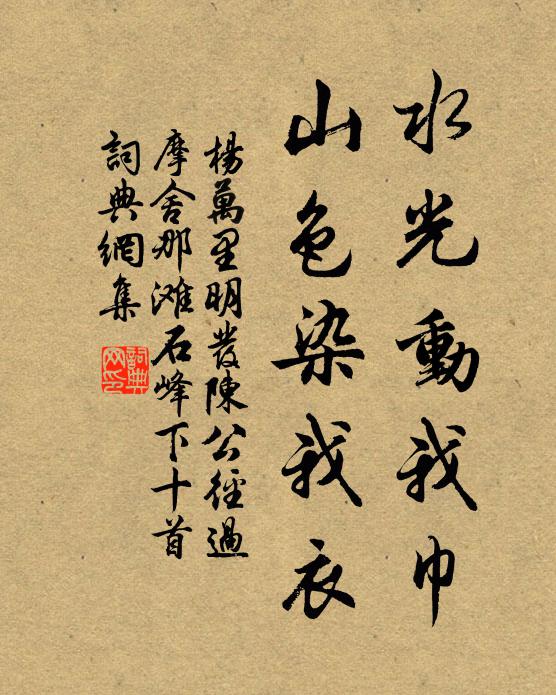 水光動我巾
山色染我衣
楊萬里明發陳公徑過
摩舍那滩石峰下十首
詞典網集
詞典網印